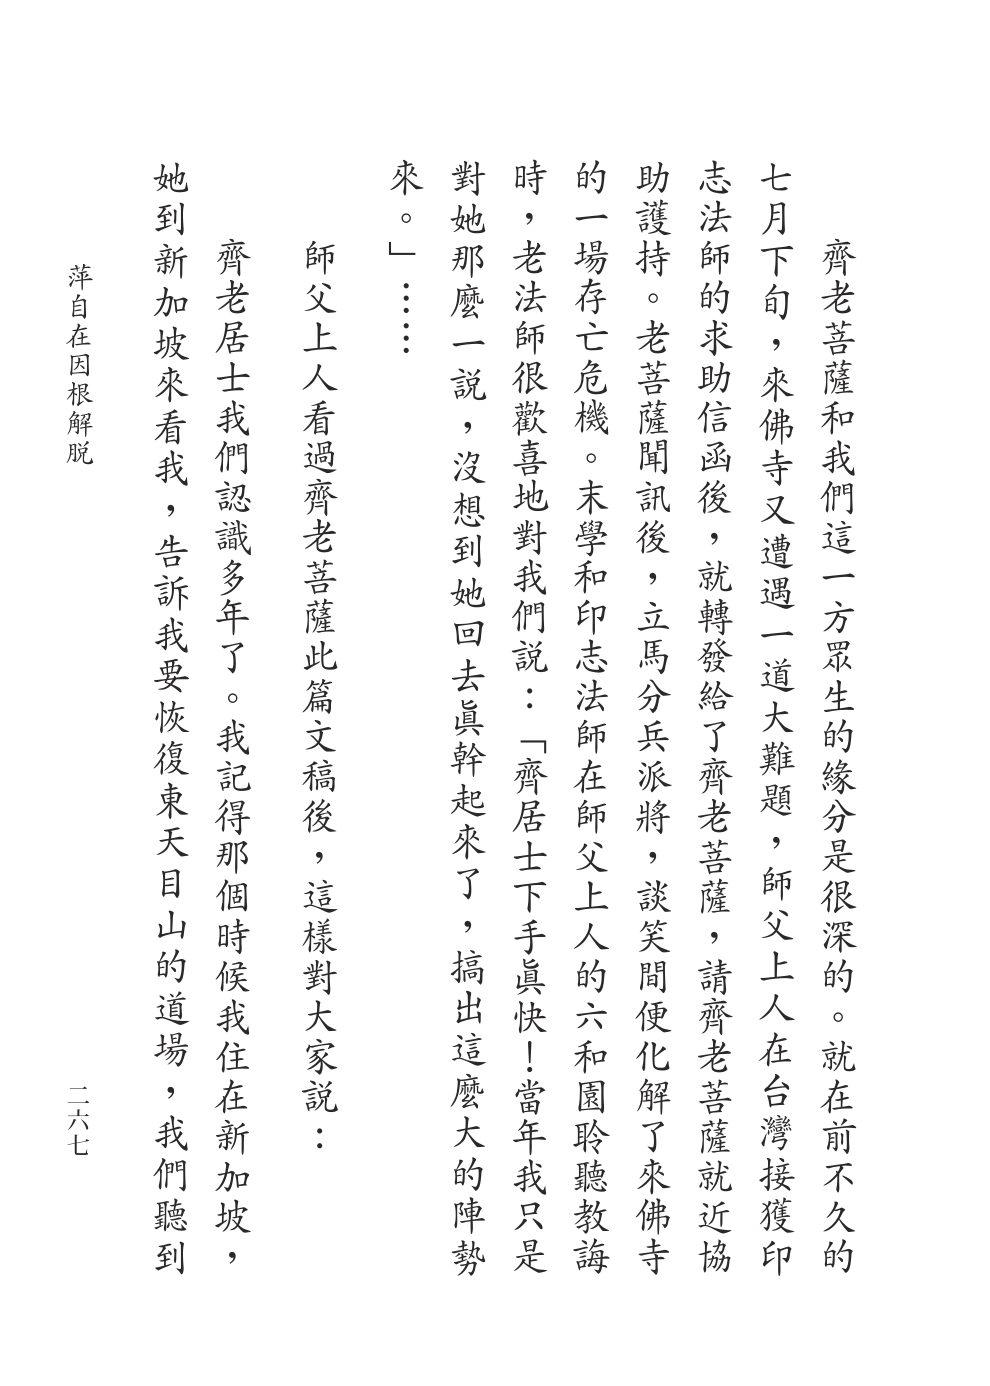 齊老菩薩和我們這一方眾生的緣分是很深的。就在前不久的
七月下旬，來佛寺又遭遇一道大難題，師父上人在台灣接獲印
志法師的求助信函後，就轉發給了齊老菩薩，請齊老菩薩就近協
助護持。老菩薩聞訊後，立馬分兵派將，談笑間便化解了來佛寺
的一場存亡危機。末學和印志法師在師父上人的六和園聆聽教誨
時，老法師很歡喜地對我們説：「齊居士下手眞快！當年我只是
對她那麼一説，沒想到她回去眞幹起來了，搞出這麼大的陣勢
來。」……
師父上人看過齊老菩薩此篇文稿後，這樣對大家説：
齊老居士我們認識多年了。我記得那個時候我住在新加坡，
她到新加坡來看我，告訴我要恢復東天目山的道場，我們聽到
萍自在因根解脱
二六七